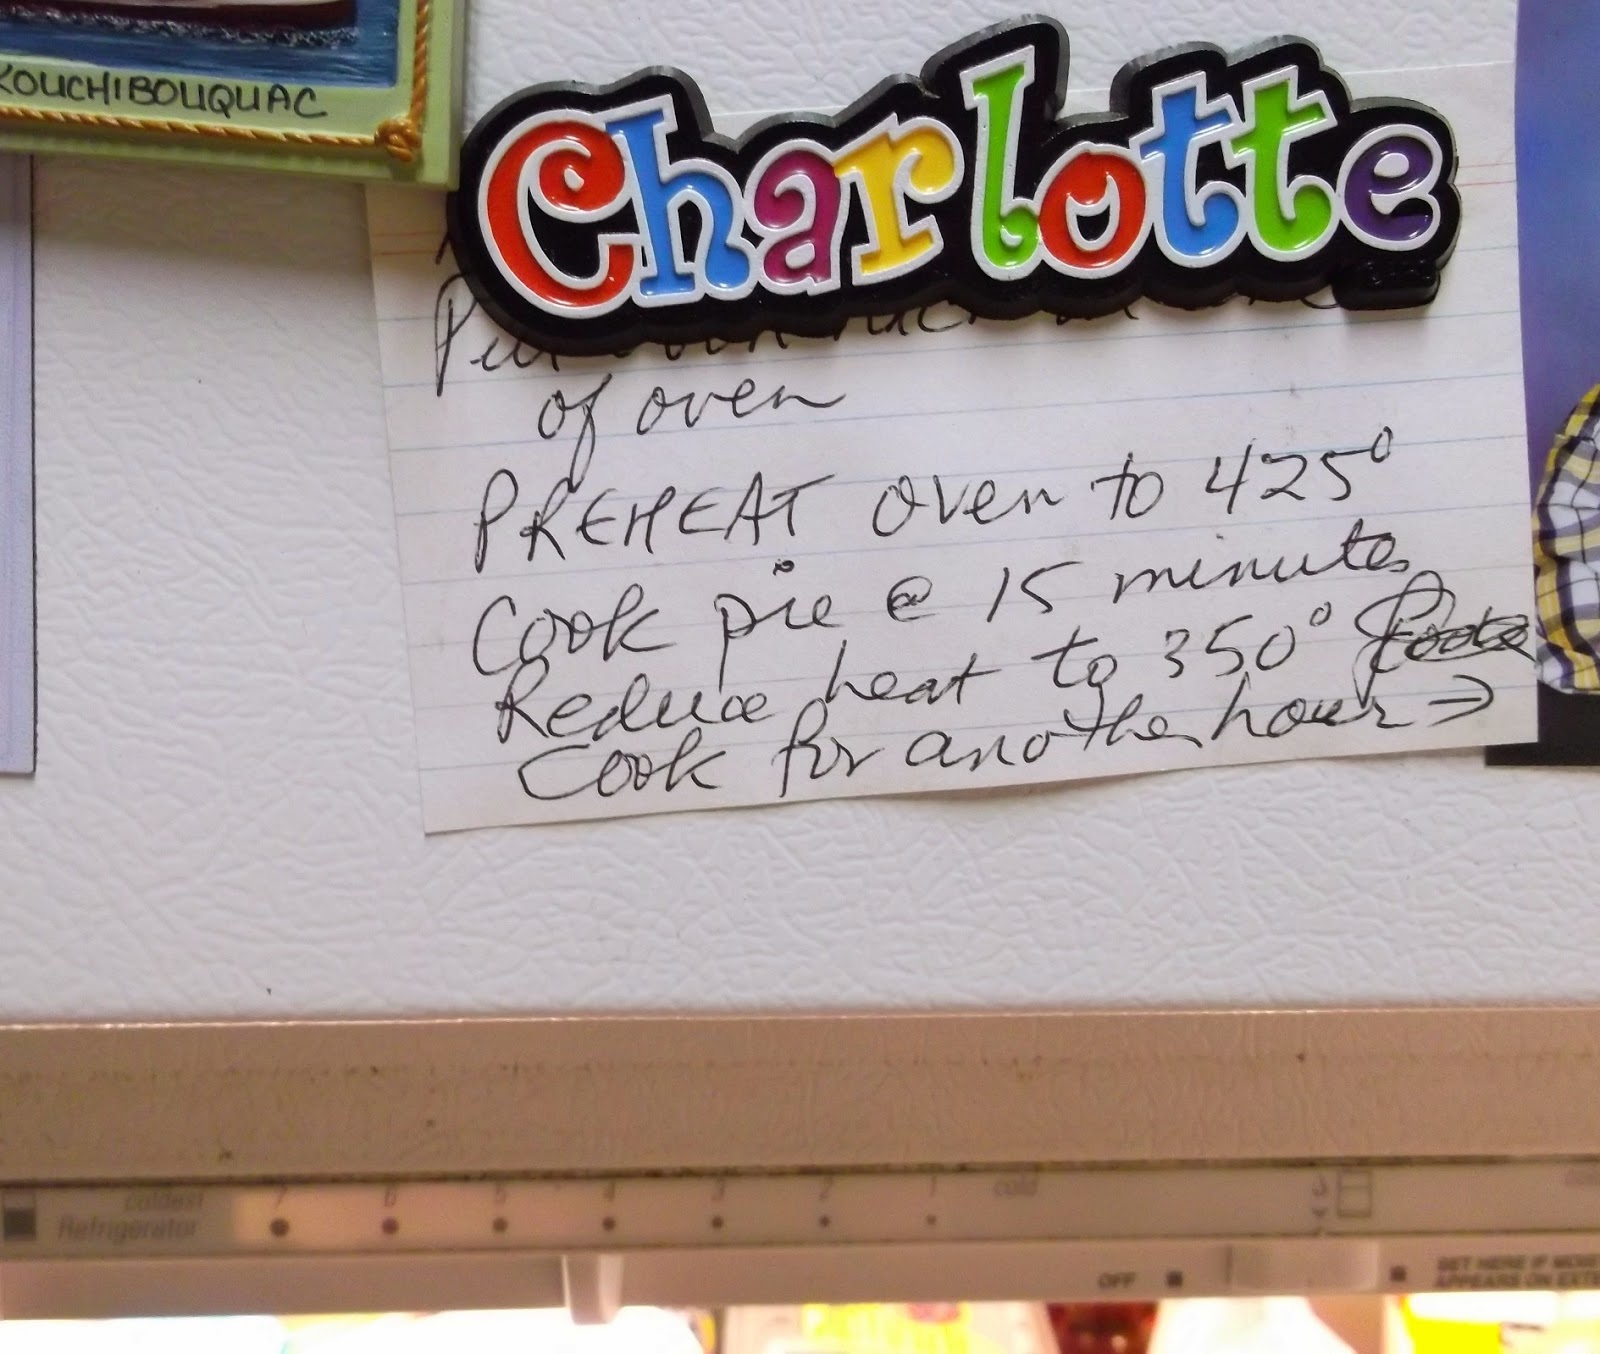 KOUCHIBOUQUAC
Charlotte
Put oven rack
of oven
PREHEAT oven to 425°
Cook pie @ 15 minutes
Reduce heat to 350°
Cook for another hour →
coldest 7 6 5 4 3 2 1 cold
Refrigerator
OFF
SET HERE IF MO
APPEARS ON EXTE